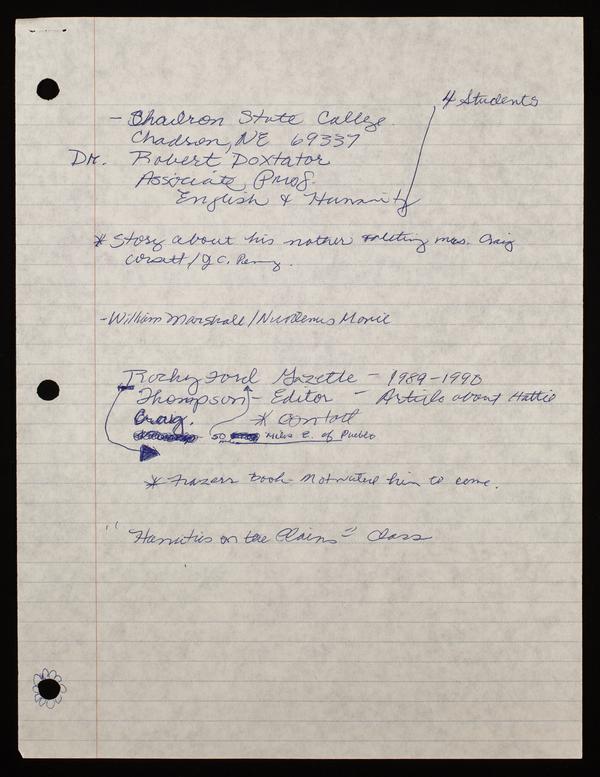 4 Students
- Chadron State College.
Chadron, NE 69337
Dr. Robert Doxtator
Associate Prof.
English & Humanity
* Story about his mother mrs. Craig
corsett / J C. Penny.
- William Marshall / Nicodemus Movie
Rocky Ford Gazette - 1989-1990
Thompson - Editor - Article about Hattie
Craig. * contact
50 miles E. of Pueblo
* Frazers book - Motivated him to come.
" on the Plains" Class